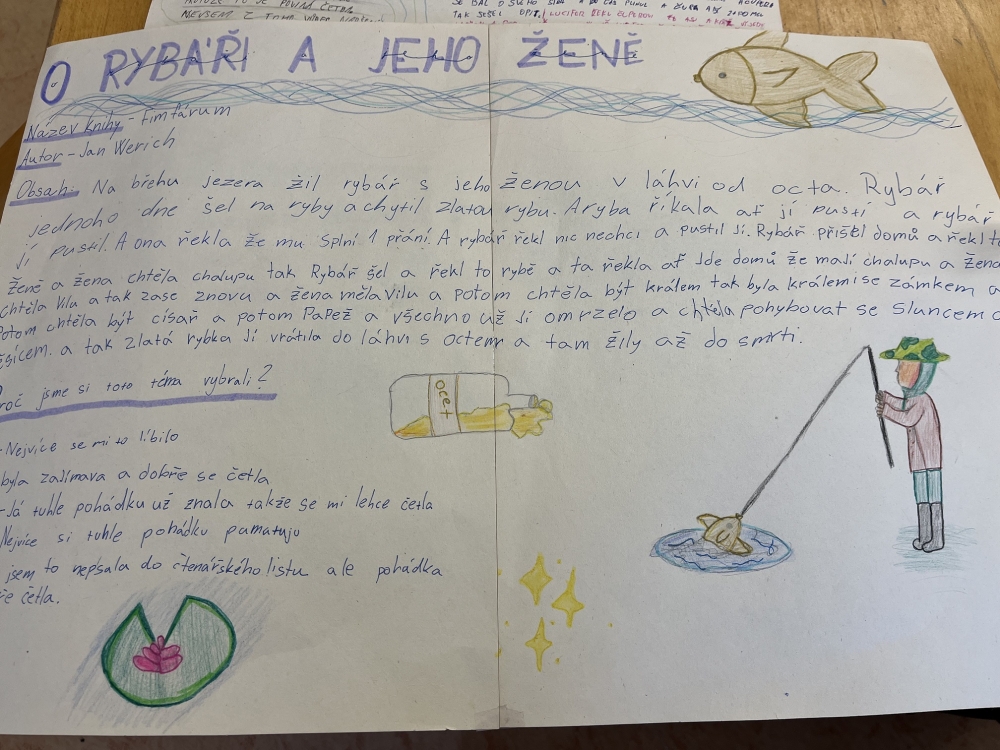 O RYBÁŘI A JEHO ŽENĚ
Název knihy - fimfárum
Autor - Jan Werich
Obsah: Na břehu jezera žil rybář s jeho ženou v láhvi od octa. Rybář
jednoho dne šel na ryby a chytil zlatou rybu. A ryba říkala ať jí pustí a rybář
jí pustil. A ona řekla že mu splní 1 přání. A rybář řekl nic nechci a pustil jí. Rybář přišel domů a řekl to
ženě a žena chtěla chalupu tak Rybář šel a řekl to rybě a ta řekla ať jde domů že mají chalupu a žena
chtěla vilu a tak zase znovu a žena měla vilu a potom chtěla být králem tak byla králem se zámkem a
Potom chtěla být císař a potom Papež a všechno už jí omrzelo a chtěla pohybovat se sluncem a
ěsícem. a tak zlatá rybka jí vrátila do láhvi s octem a tam žily až do smrti.
roč jsme si toto téma vybrali?
- Nejvíce se mi to líbilo
byla zajímava a dobře se četla
- Já tuhle pohádku už znala takže se mi lehce četla
Nejvíce si tuhle pohádku pamatuju
jsem to nepsala do čtenářského listu ale pohádka
ře četla.
ocet